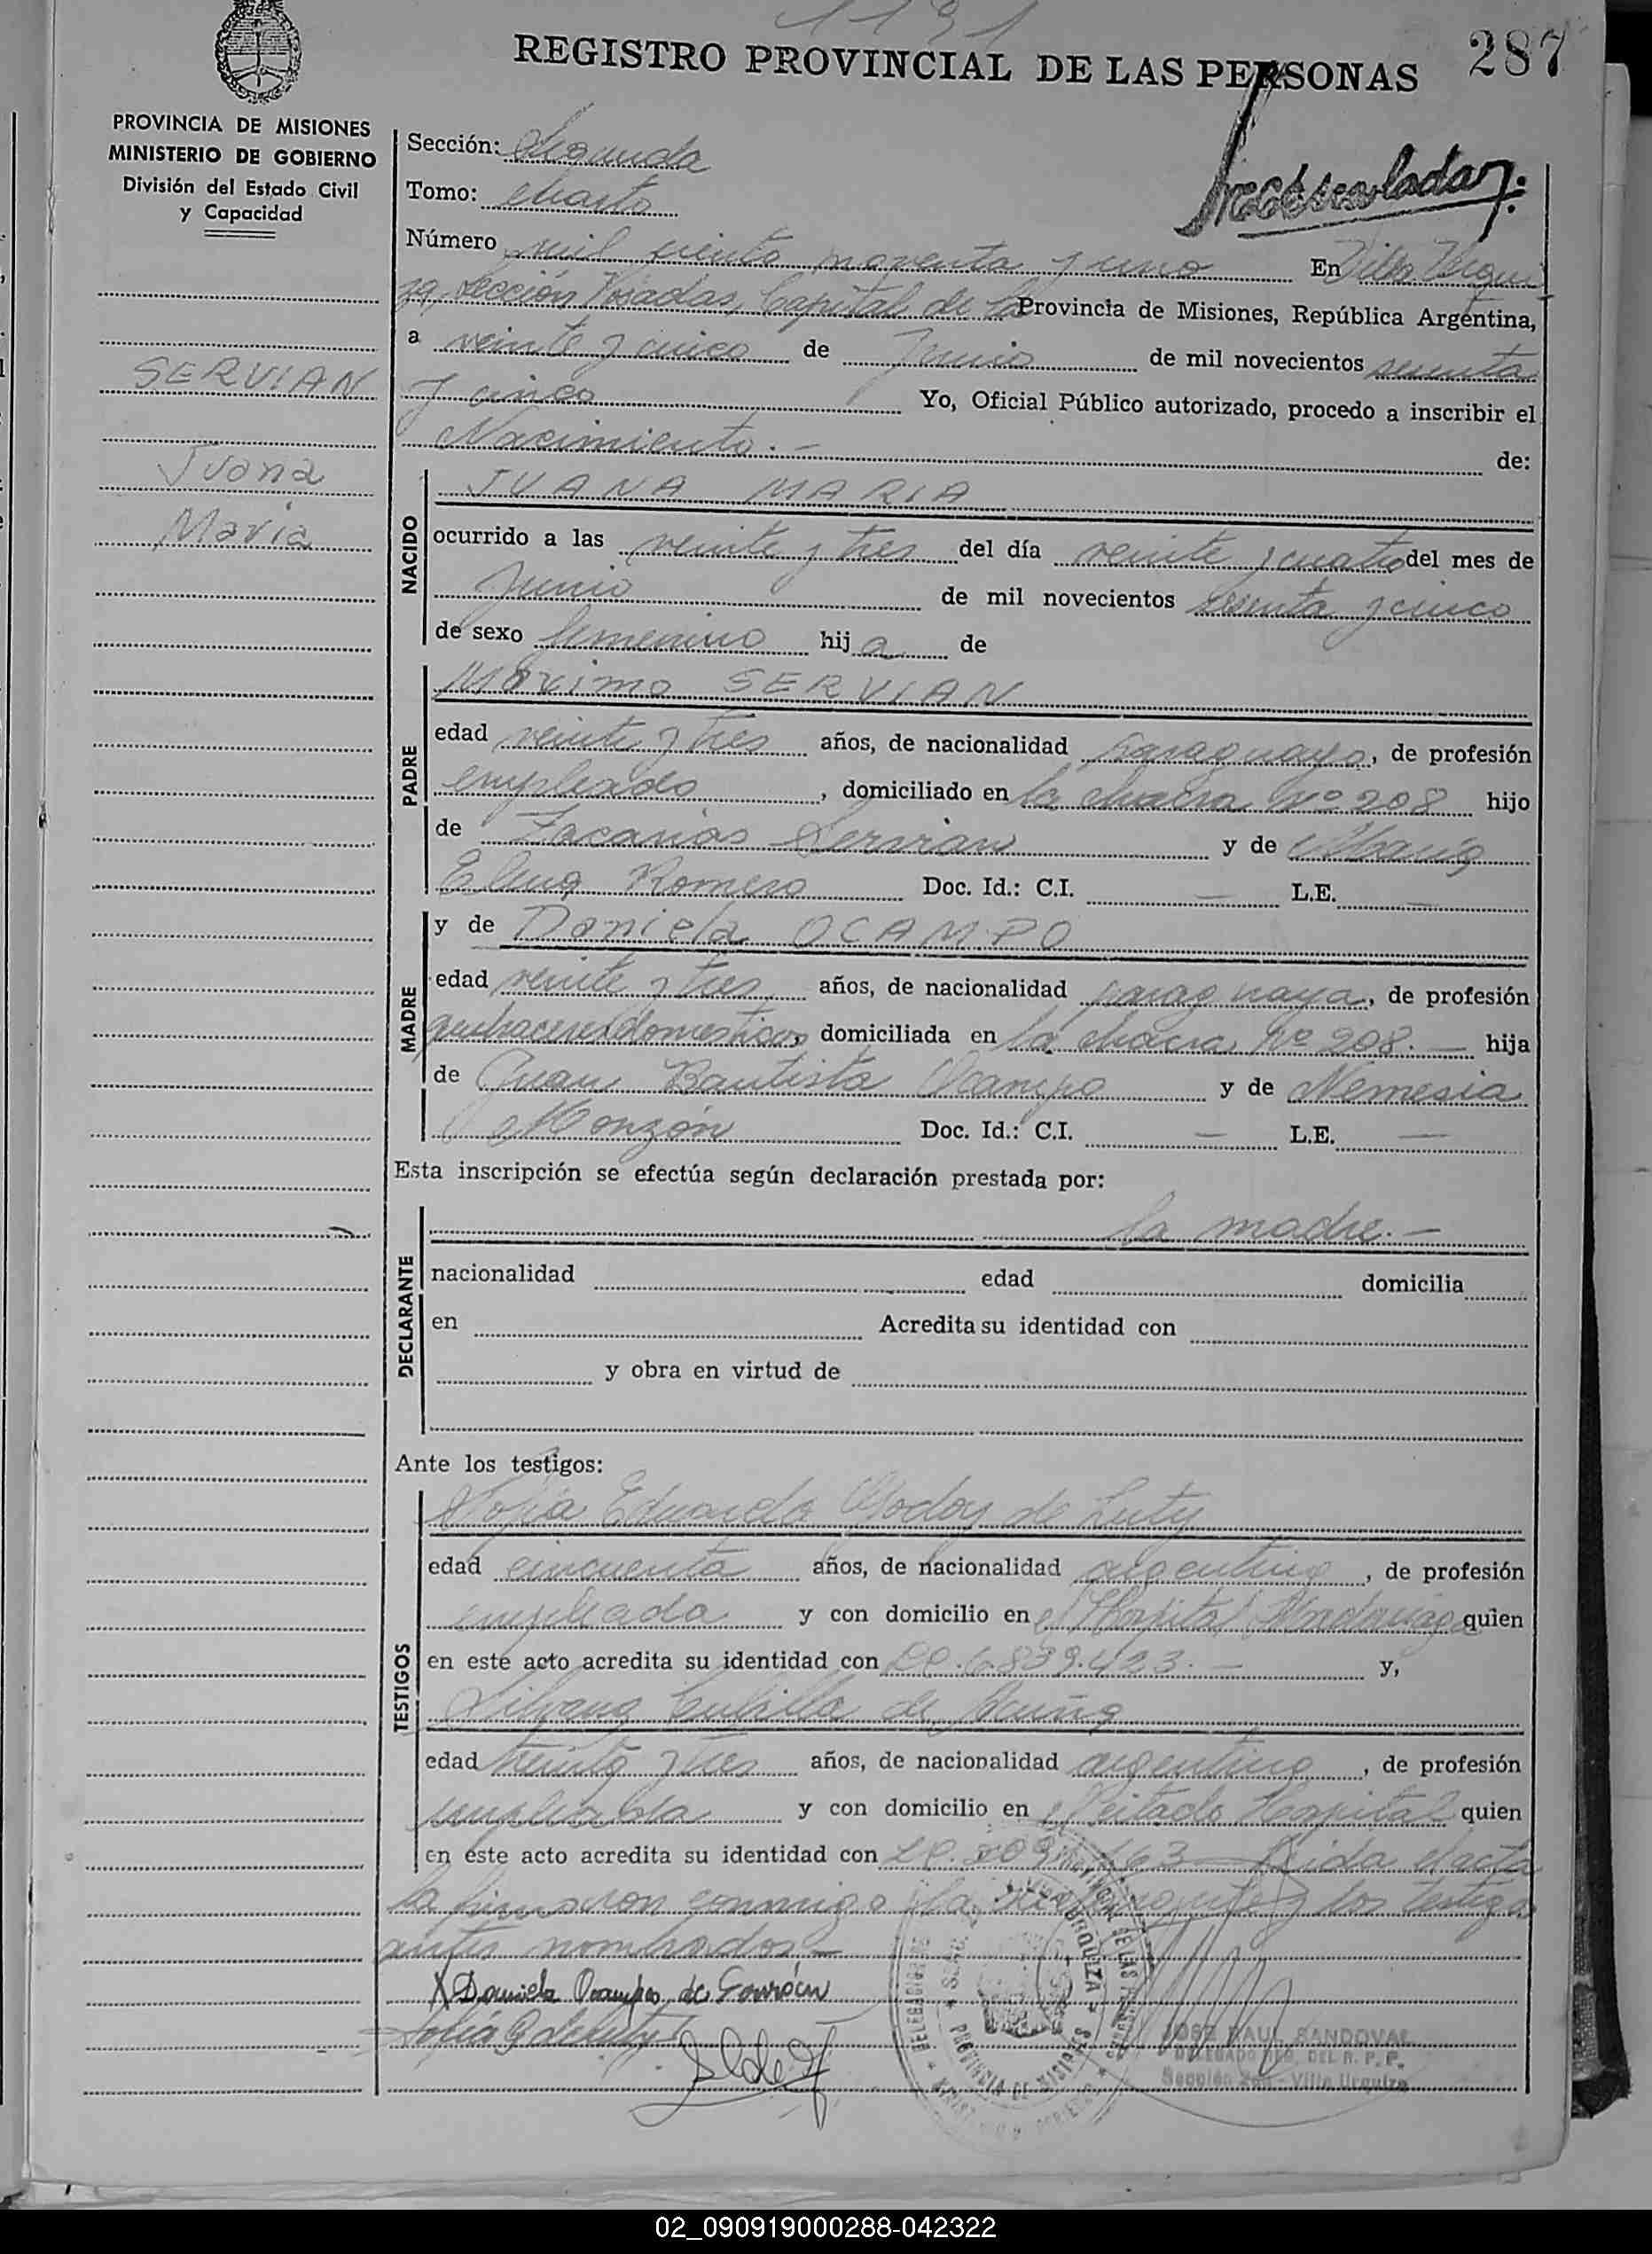 1191
REGISTRO PROVINCIAL DE LAS PERSONAS
287
PROVINCIA DE MISIONES
MINISTERIO DE GOBIERNO
División del Estado Civil
y Capacidad
SERVIAN
Juana
Maria
Sección: Segunda
Tomo: Cuarto
Número mil ciento noventa y uno En Villa Urqui-
za, Sección Posadas, Capital de la Provincia de Misiones, República Argentina,
a veinte y cinco de Junio de mil novecientos sesenta
y cinco Yo, Oficial Público autorizado, procedo a inscribir el
Nacimiento.- de:
NACIDO
JUANA MARIA
ocurrido a las veinte y tres del día veinte y cuatro del mes de
Junio de mil novecientos sesenta y cinco
de sexo femenino hija de
PADRE
Máximo SERVIAN
edad veinte y tres años, de nacionalidad paraguayo, de profesión
empleado, domiciliado en la chacra Nº 208 hijo
de Zacarias Servian y de Maria
Elena Romero Doc. Id.: C.I. — L.E. —
MADRE
y de Daniela OCAMPO
edad veinte y tres años, de nacionalidad paraguaya, de profesión
quehaceres domesticos, domiciliada en la chacra Nº 208.— hija
de Juan Bautista Ocampo y de Nemesia
Monzón Doc. Id.: C.I. — L.E. —
Esta inscripción se efectúa según declaración prestada por:
DECLARANTE
la madre.-
nacionalidad edad domicilia
en Acredita su identidad con
y obra en virtud de
Ante los testigos:
TESTIGOS
Sofia Eduarda Godoy de Luty
edad cincuenta años, de nacionalidad argentina, de profesión
empleada y con domicilio en el Hospital Madariaga quien
en este acto acredita su identidad con 6.839.423.— y,
de Acuña
edad treinta y tres años, de nacionalidad argentina, de profesión
empleada y con domicilio en el citado Hospital quien
en este acto acredita su identidad con Leida el acta
la firmaron conmigo la y los testigos
antes nombrados.-
X Daniela Ocampo de
Sofia G de Luty
PROVINCIA DE MISIONES
JOSE RAUL SANDOVAL
DELEGADO REG. DEL R. P. P.
Sección 2da - Villa Urquiza
02_090919000288-042322